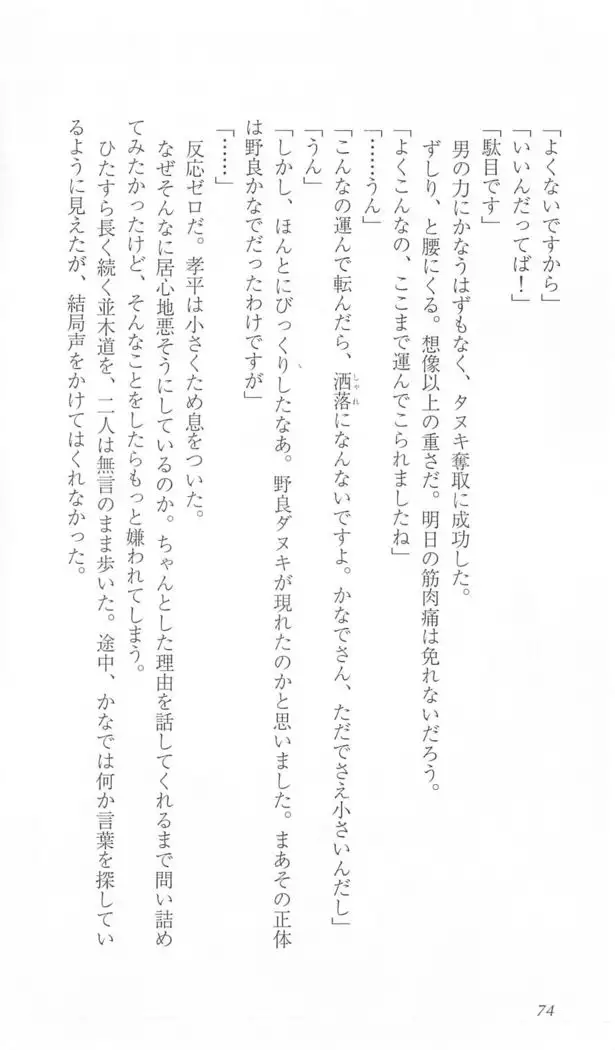 「よくないですから」
「いいんだってば！」
「駄目です」
男の力にかなうはずもなく、タヌキ奪取に成功した。
ずしり、と腰にくる。想像以上の重さだ。明日の筋肉痛は免れないだろう。
「よくこんなの、ここまで運んでこられましたね」
「……うん」
「こんなの運んで転んだら、洒落になんないですよ。かなでさん、ただでさえ小さいんだし」
しゃれ
「うん」
「しかし、ほんとにびっくりしたなあ。野良ダヌキが現れたのかと思いました。まあその正体
は野良かなでだったわけですが」
「……」
反応ゼロだ。孝平は小さくため息をついた。
なぜそんなに居心地悪そうにしているのか。ちゃんとした理由を話してくれるまで問い詰め
てみたかったけど、そんなことをしたらもっと嫌われてしまう。
ひたすら長く続く並木道を、二人は無言のまま歩いた。途中、かなでは何か言葉を探してい
るように見えたが、結局声をかけてはくれなかった。
74